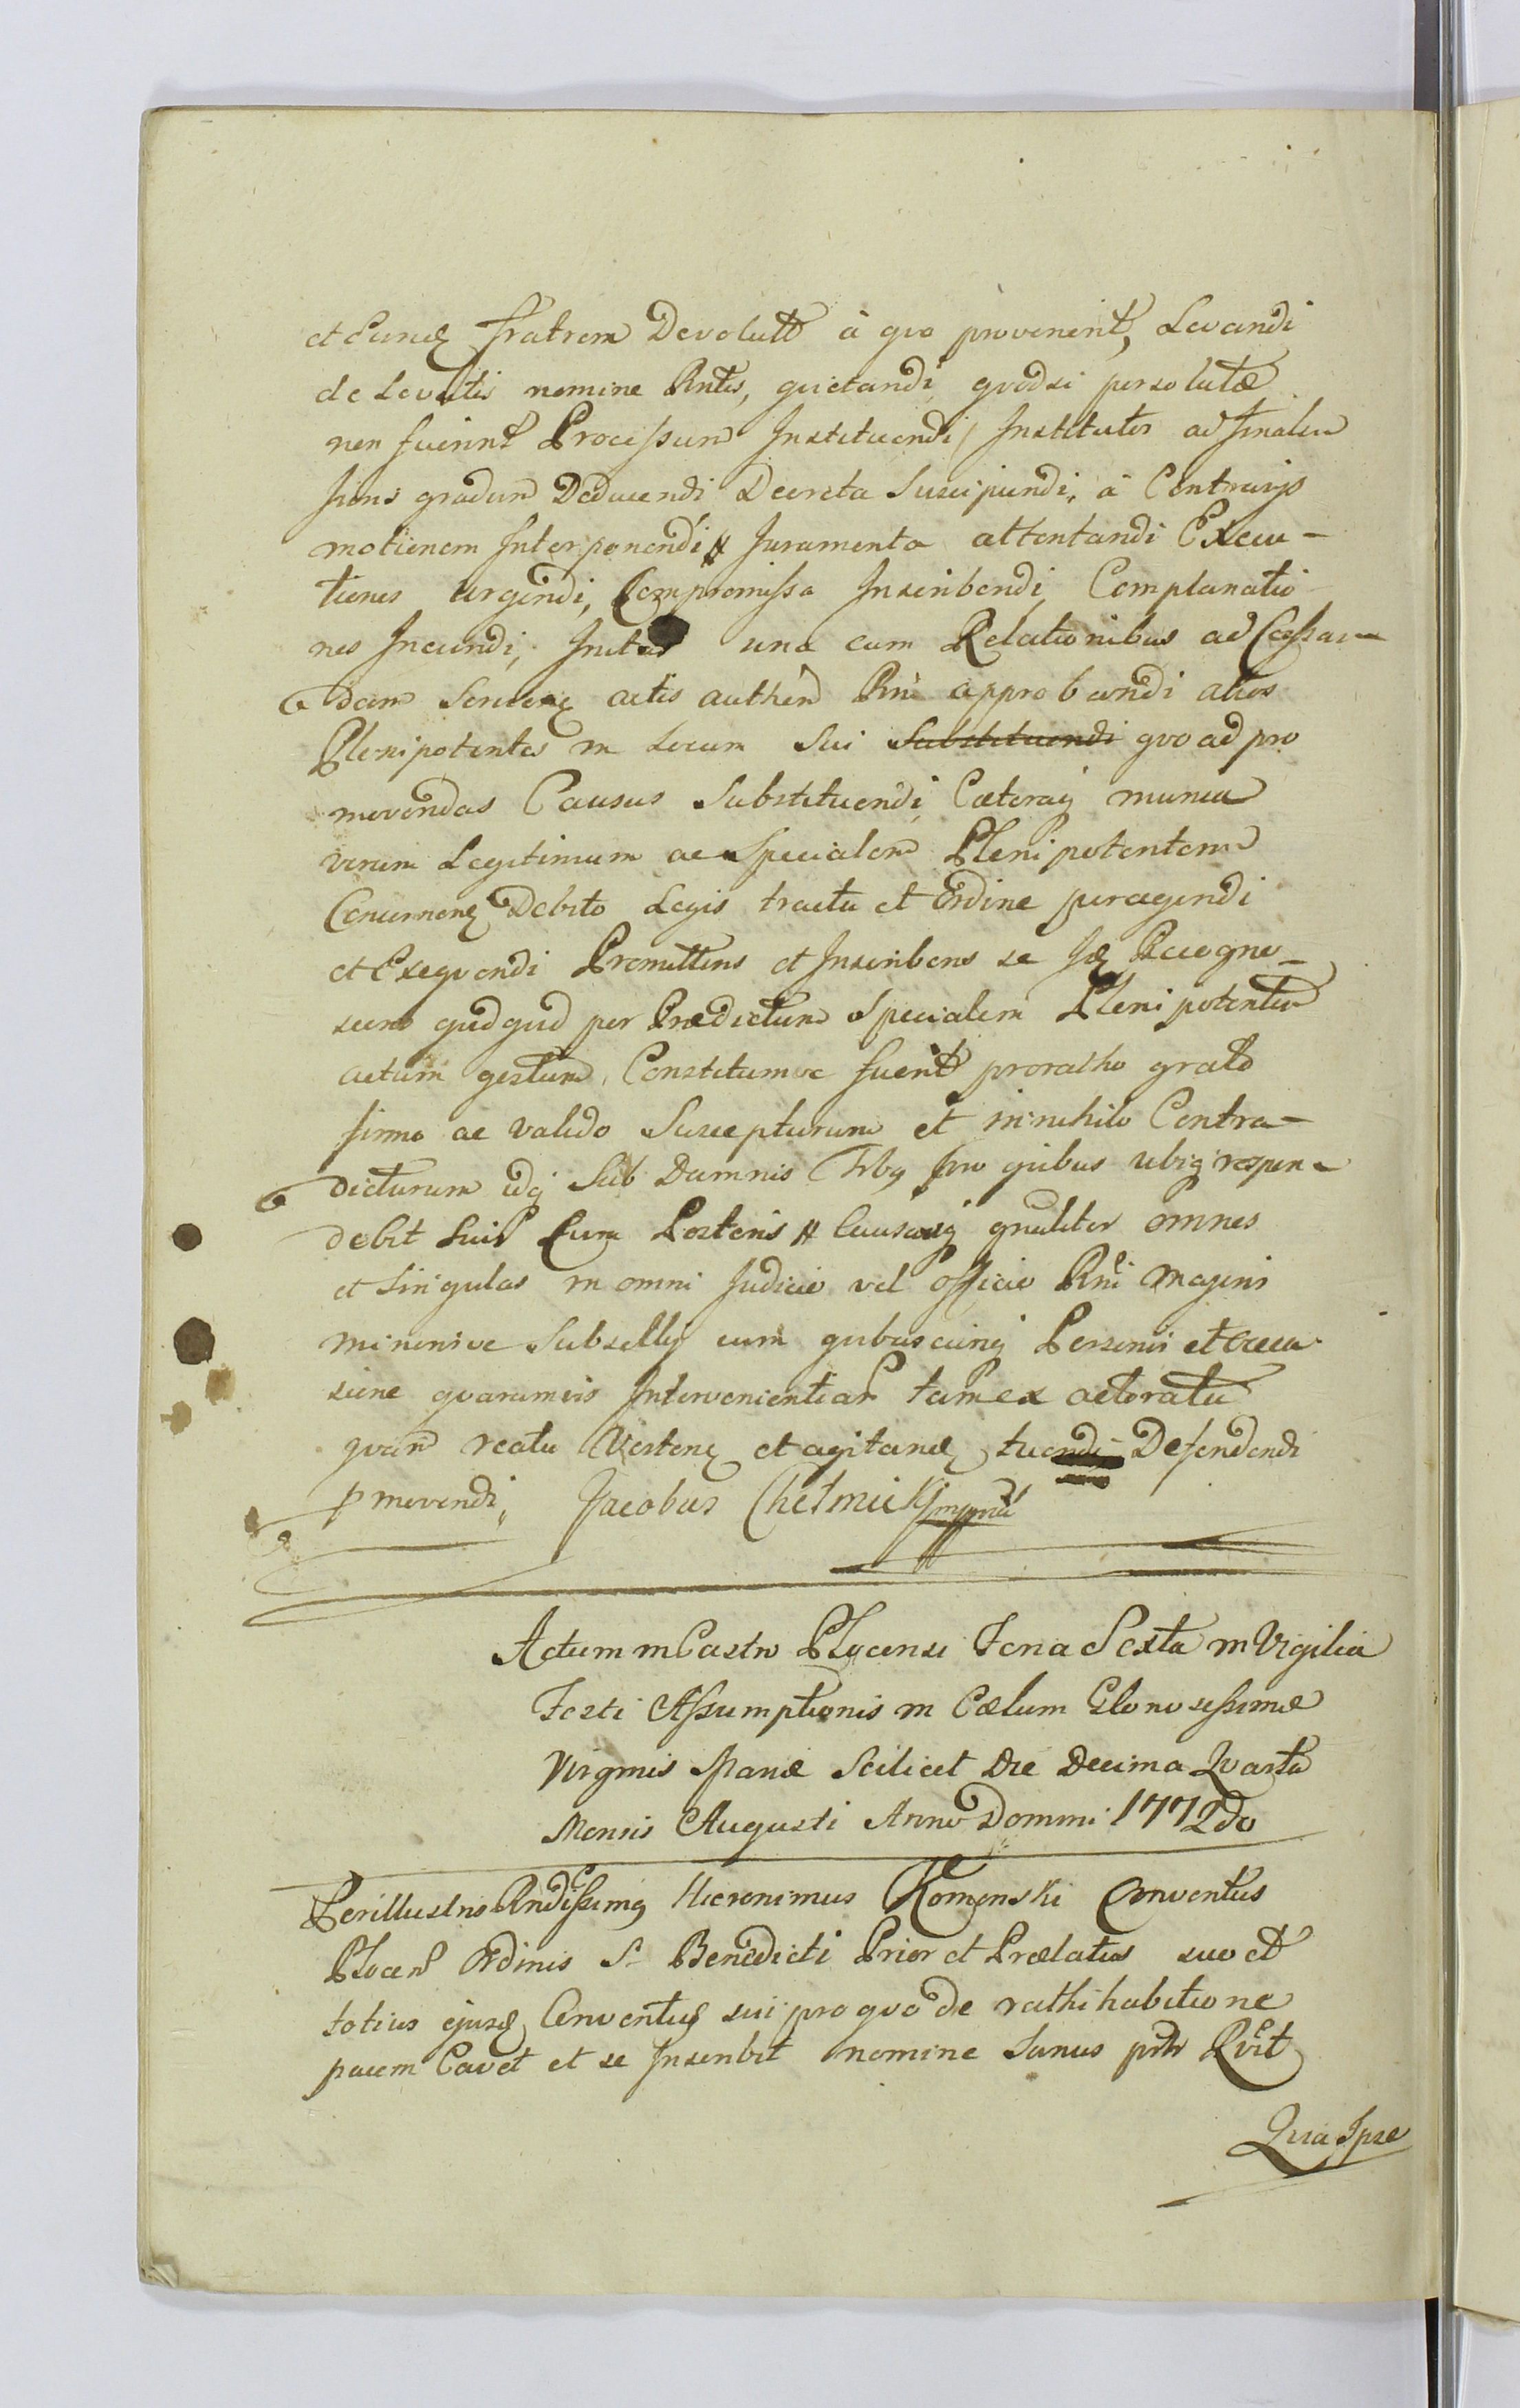 et Eund Fratrem Devolutt à quo provenint, Levandi
de Levatis nomine Rntis, quietandi quodsi persolutæ
non fuerint Processum Instituendi, Institutos ad finalem
Juris gradum Deducendi Decreta Suscipiendi, à Contrarys
motionem Interponendi # Juramenta attentandi Execu-
tiones urgendi, Compromissa Inscribendi, Complanatio
nes Ineundi, Initas una cum Relationibus ad
dam actis authen Rni approbandi alios
Plenipotentes in Locum Sui Substituendi quo ad pro
movendas Causas Substituendi, Cæteraq munia
verum Legitimum ac Specialem Plenipotentem
Concernen Debito Legis tractu et Ordine peragendi
et Exequendi Promittens et Inscribens se Id Recogno-
scens quidquid per Prædictum Specialem Plenipotentem
actum gestum, Constitumve fuerit pro grato
firmo ac valido Suscepturum et in nihilo Contra-
dicturum idq Sub Damnis pro quibus ubiq respon-
debit Suis Cum Posteris # Causasq gnaliter omnes
et singulas in omni Judicio vel officio Rni Majoris
minorisve Subselly cum quibuscunq Personis et occa
sione quarumvis Intervenientiar tam ex actoratu
quam reatu Verten et agitand, tuendi Defendendi
pmovendi, Jacobus Chełmicki mppria
Actum in Castro Plocensi Feria Sexta in Vigilia
Festi Assumptionis in Cælum Gloriosissimæ
Virginis Mariæ Scilicet Die Decima Quarta
Mensis Augusti Anno Domini 1772do
Perillustris Rndissimq Hieronimus Komenski Conventus
Plocen Ordinis S. Benedicti Prior et Prælatus suo et
totius ejusd Conventus sui pro quo de rathihabitione
pacem Cavet et se Inscribit nomine Sanus
Quia Ipse